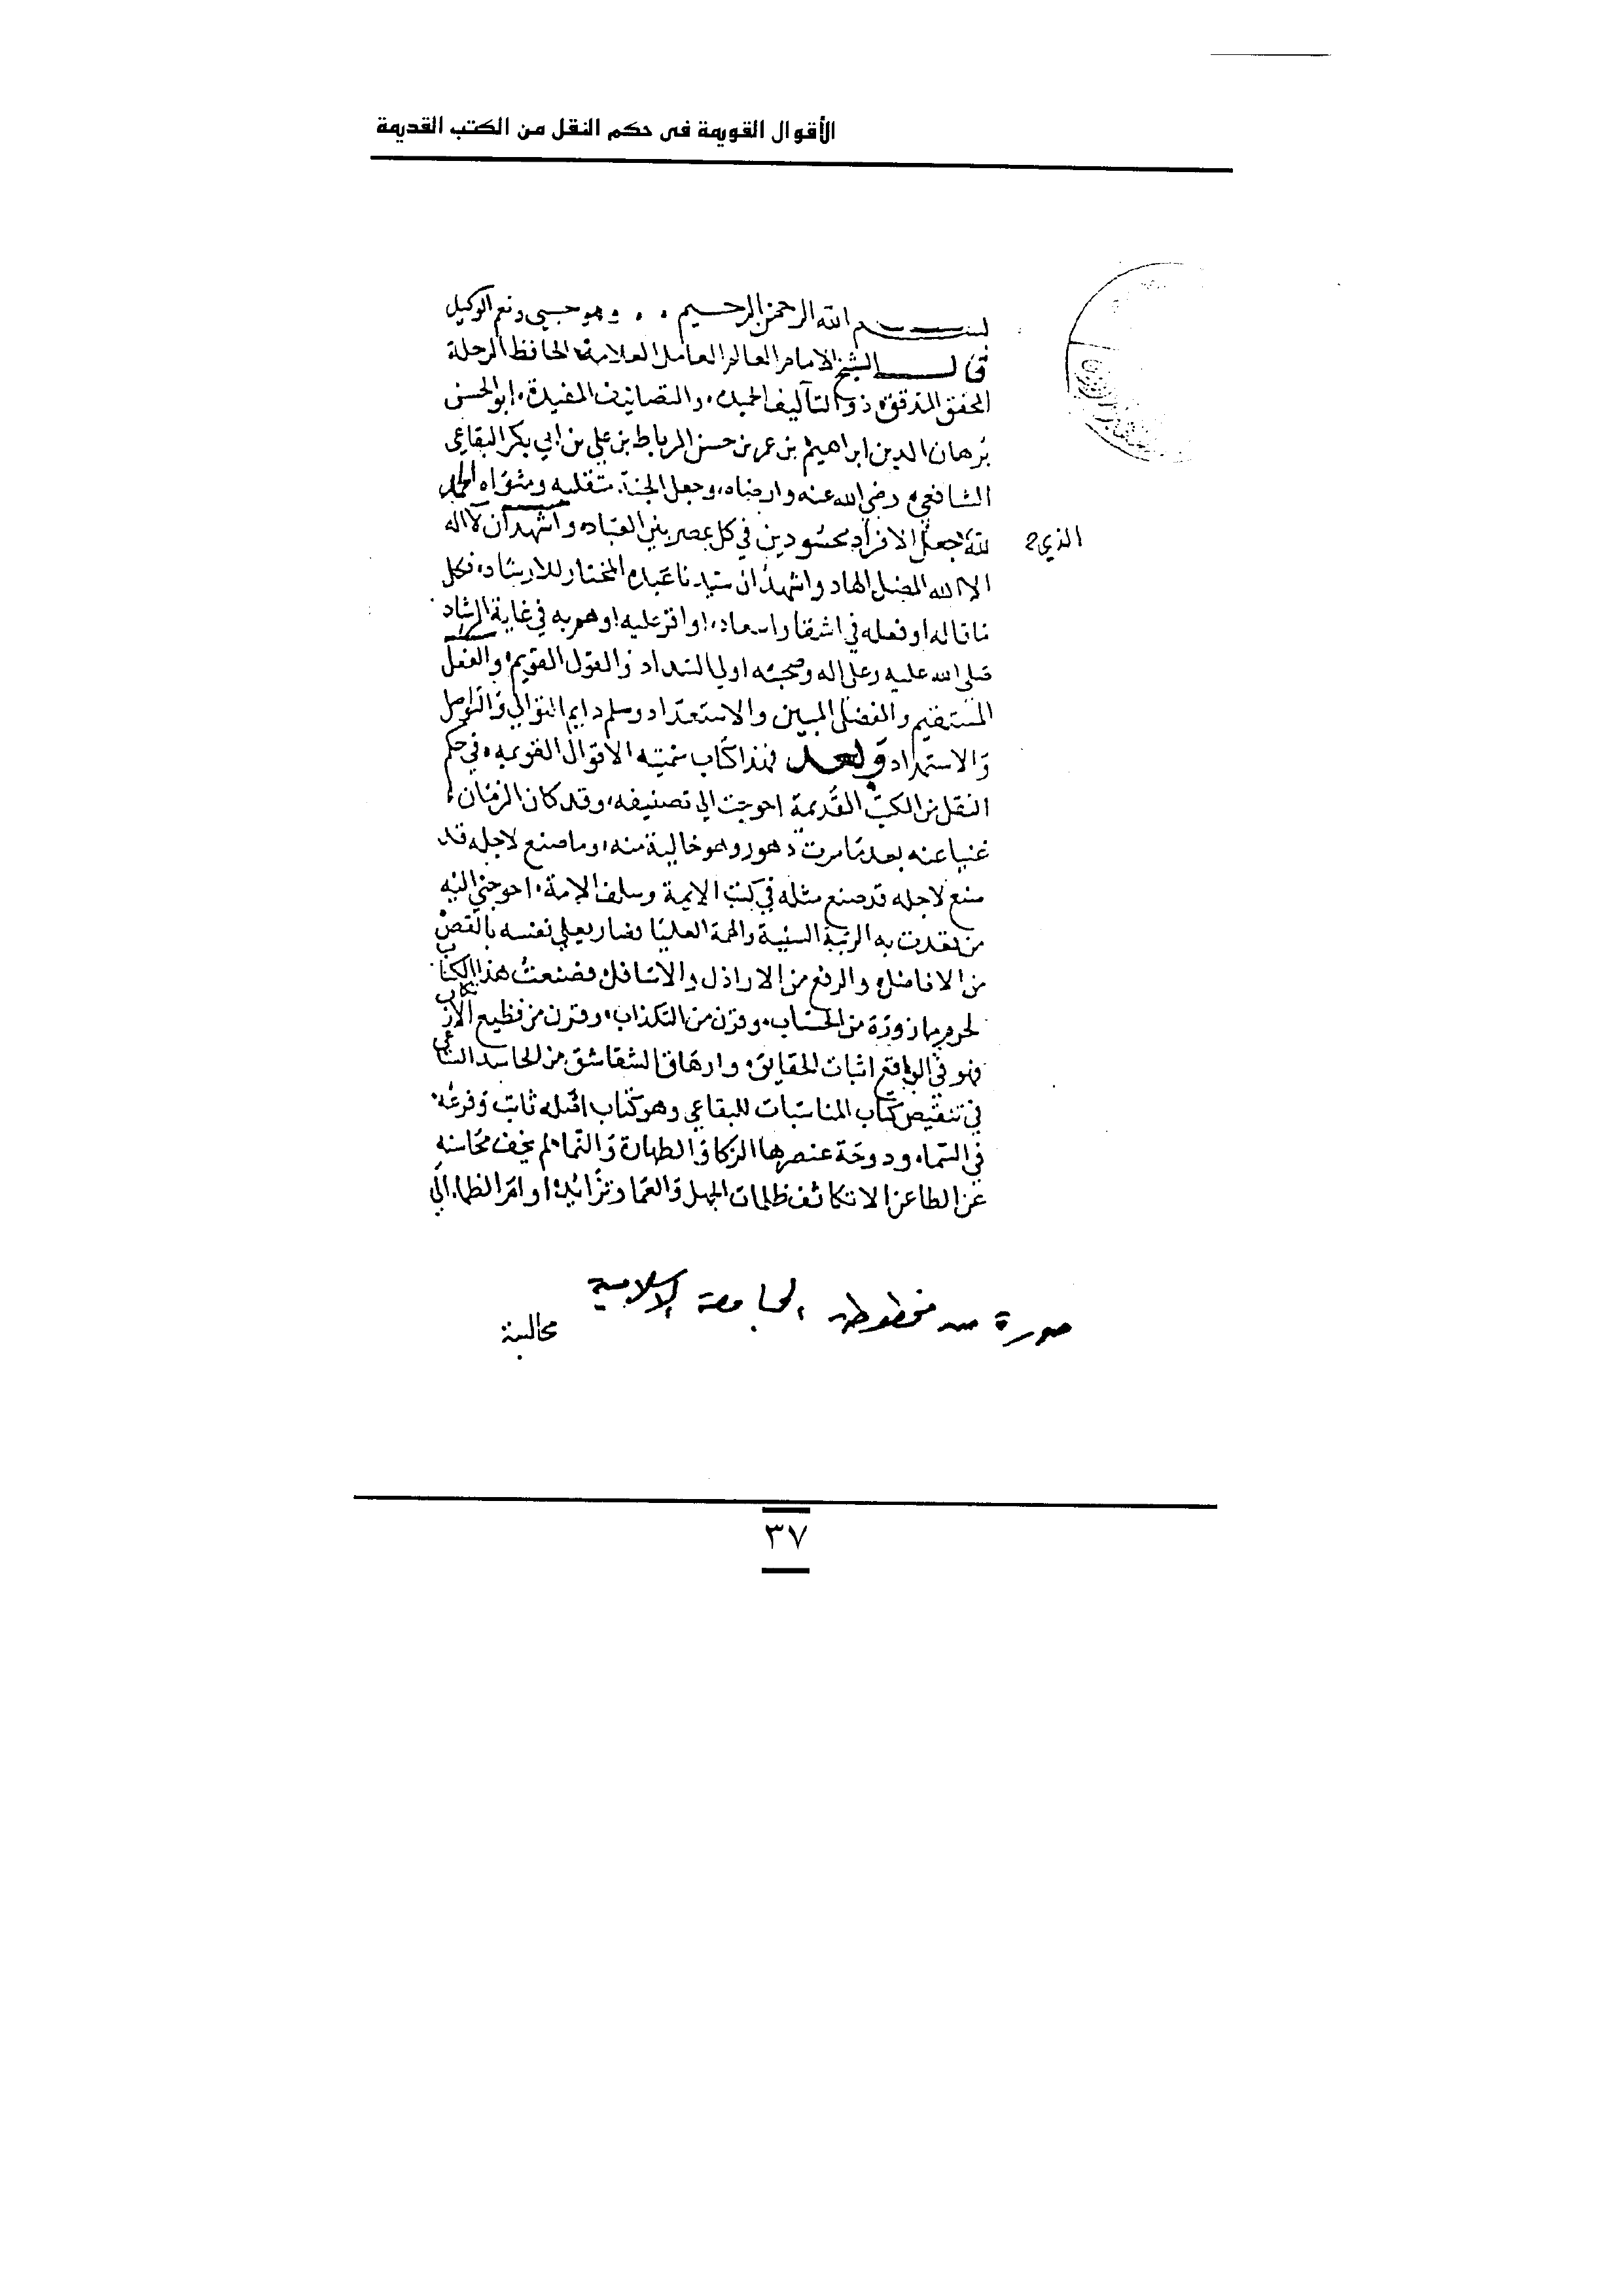 الأقوال القويمة فى حكم النقل من الكتب القديمة
بسم الله الرحمن الرحيم . . وهو حسبي ونعم الوكيل
قال الشيخ الامام العالم العامل العلامة الحافظ الرحلة
المحقق المدقق ذو التآليف الحميدة والتصانيف المفيدة ابو الحسن
برهان الدين ابراهيم بن عمر بن حسن الرباط بن علي بن ابي بكر البقاعي
الشافعي رضي الله عنه وارضاه وجعل الجنة متقلبه ومثواه الحمد
لله جعل الافراد محسودين في كل عصر بين العباد واشهد ان لا اله
الذي
الا الله المضل الهاد واشهد ان سيدنا عبده المختار للارشاد فكل
ما قاله او فعله في اشقا واسعاد او اقر عليه او هم به في غاية الرشاد
صلى الله عليه وعلى اله وصحبه اولي السداد والقول القويم والفعل
المستقيم والفضل المبين والاستعداد وسلم دايم التوالي والتواصل
والاستمداد وبعد فهذا كتاب سميته الاقوال القويمه في حكم
النقل من الكتب القديمة احوجت الي تصنيفه وقد كان الزمان
غنيا عنه بعد ما مرت دهور وهو خالية منه وما صنع لاجله قد
صنع لاجله قد صنع مثله في كتب الايمة وسلف الامة احوجني اليه
من بعدت به الرتبة السنية والهمة العليا فصار يعلي نفسه بالغض
من الافاضل والرفع من الاراذل والاسافل فصنعت هذا الكتاب
لحرم ما زوره من الحساب وقرن من التكذاب وقرن من فظيع الارتكاب
فهو في الواقع اثبات الحقايق وازهاق الشقاشق من الحاسد الساعي
في تنقيص كتاب المناسبات للبقاعي وهو كتاب اصله ثابت وفرعه
في السماء ودوحة عنصرها الزكا والطهارة والنما لم يخف محاسنه
عن الطاعن الا تكاثف ظلمات الجهل والعما وتزايد اوام الظما الي
صورة من مخطوطة الجامعة الاسلامية
٣٧